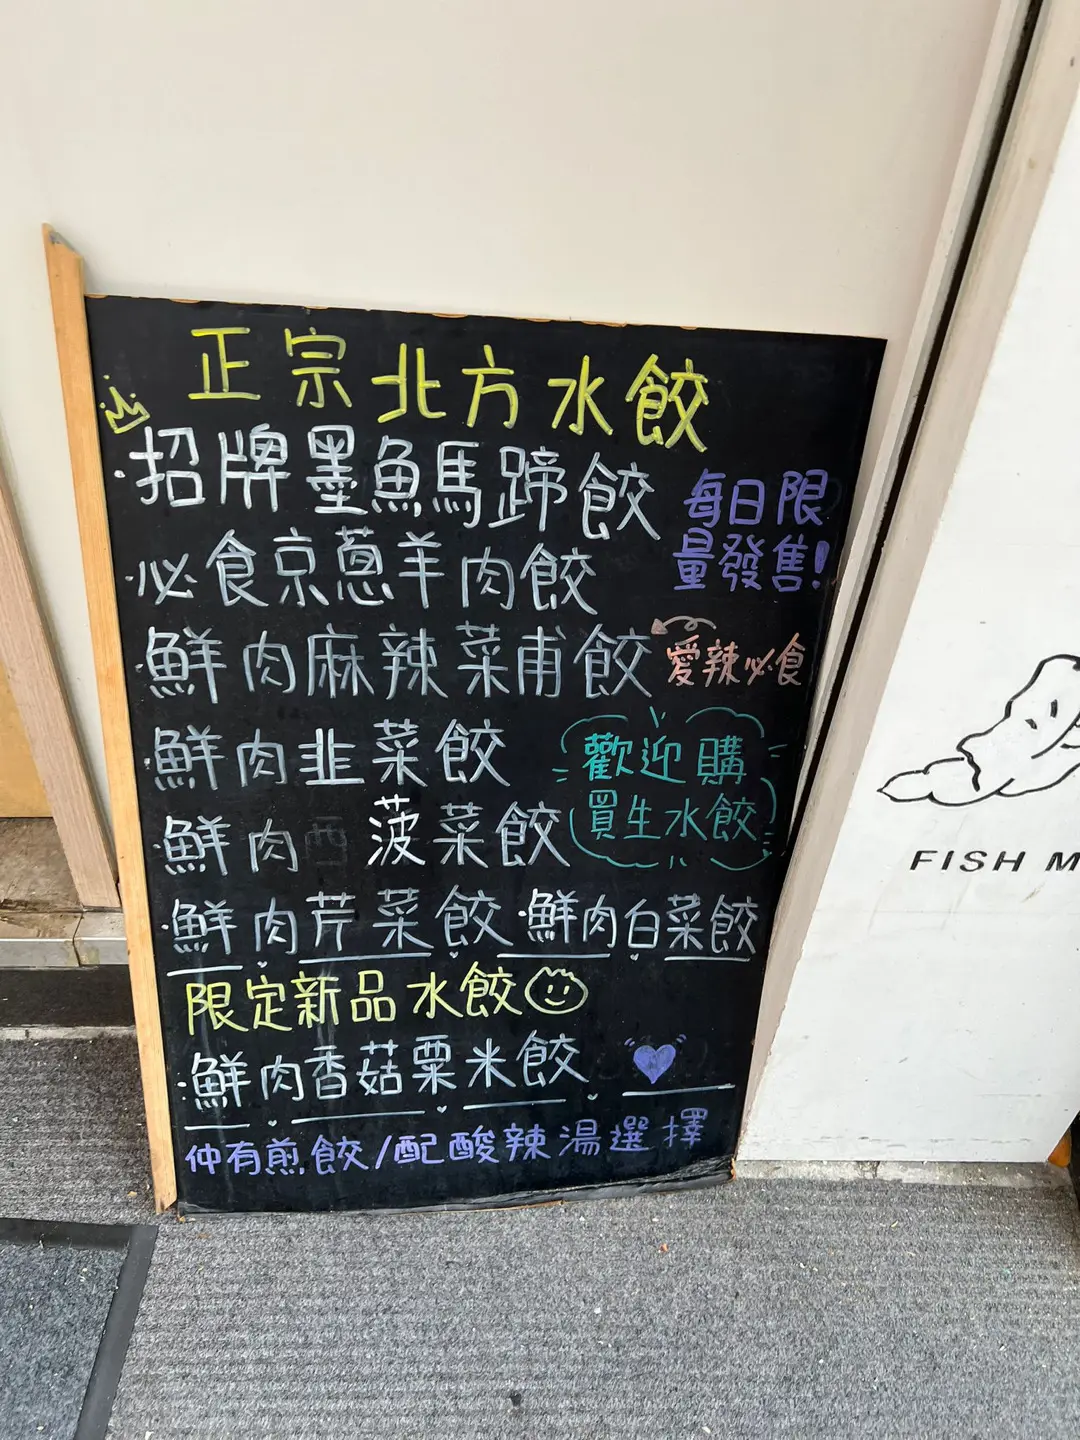 正宗北方水餃
·招牌墨魚馬蹄餃
每日限
量發售!
·必食京蔥羊肉餃
·鮮肉麻辣菜甫餃
愛辣必食
·鮮肉韭菜餃
歡迎購
買生水餃
·鮮肉菠菜餃
·鮮肉芹菜餃 ·鮮肉白菜餃
限定新品水餃
·鮮肉香菇粟米餃
仲有煎餃/配酸辣湯選擇
FISH M